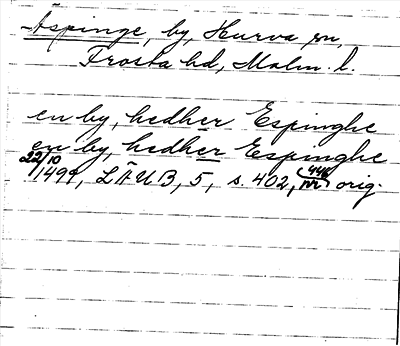 Äspinge, by, Hurva sn,
Frosta hd, Malm. l.
en by, hedher Espinghe
en by, hedher Espinghe
22/10 1499, LÄUB, 5, s. 402, nr 446 orig.